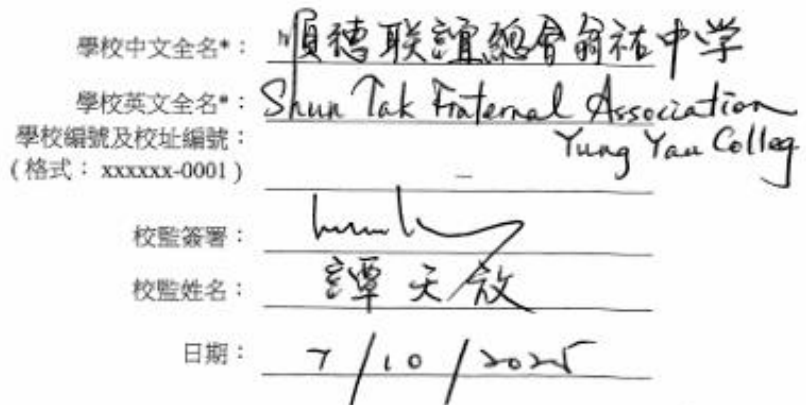 學校中文全名*： 順德联誼總會翁祐中学
學校英文全名*： Shun Tak Fraternal Association
Yung Yau Colleg
學校編號及校址編號：
(格式： xxxxxx-0001) –
校監簽署：
校監姓名： 譚天放
日期： 7/10/2025